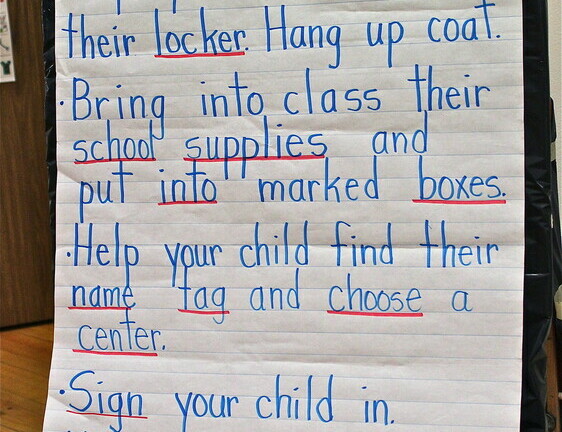 their locker. Hang up coat.
·Bring into class their
school supplies and
put into marked boxes.
·Help your child find their
name tag and choose a
center.
·Sign your child in.